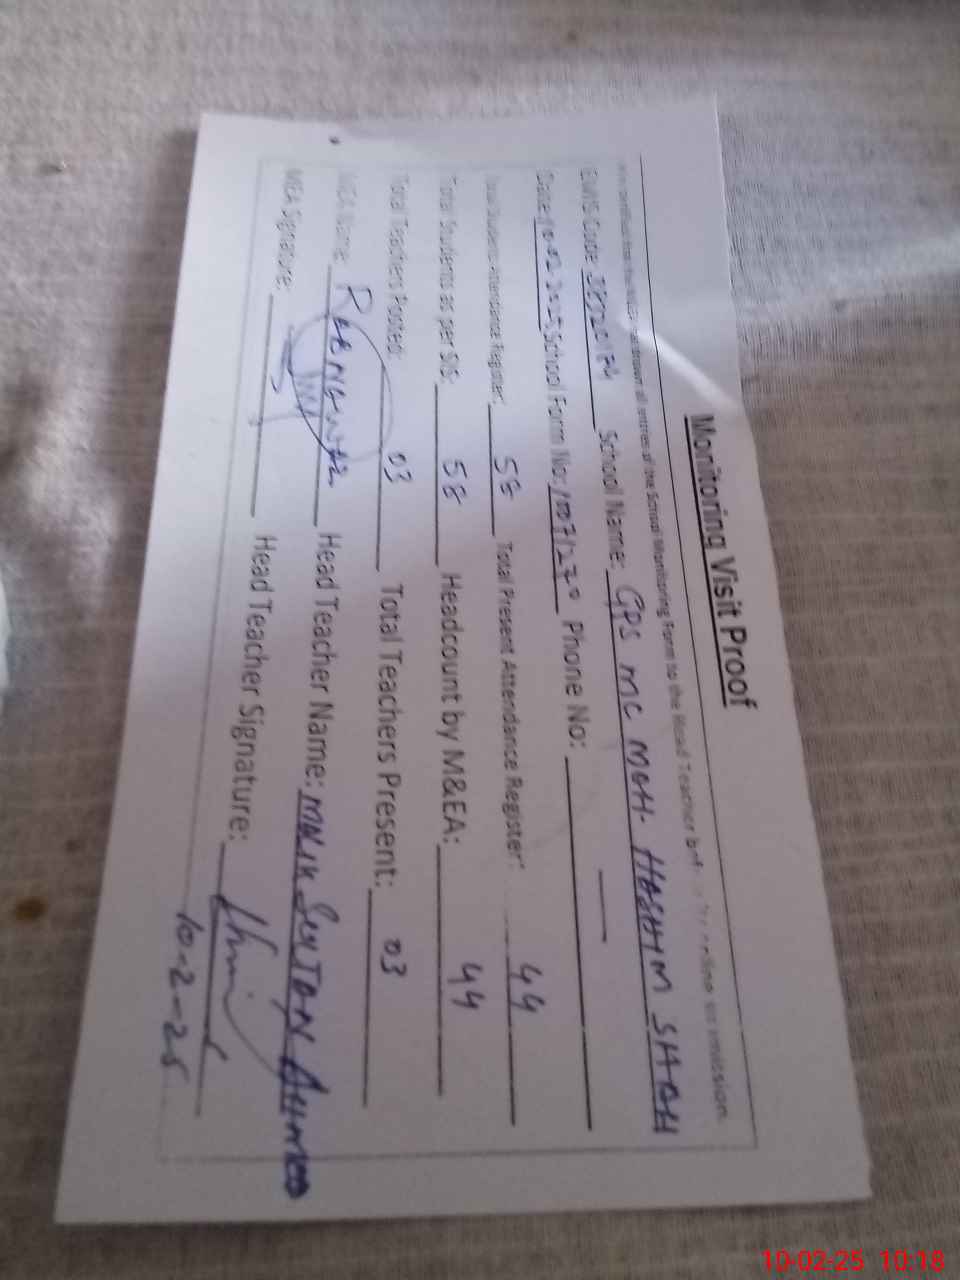 Monitoring Visit Proof
entries of the School Monitoring Form to the Head Teacher
EMIS Code: School Name: GPS MC MOH. HASHIM SHAH
Date: 10-02-2025 School Form No: Phone No: —
Total Students Attendance Register: 58 Total Present Attendance Register: 44
Total Students as per SIS: 58 Headcount by M&EA: 44
Total Teachers Posted: 03 Total Teachers Present: 03
MEA Name: Head Teacher Name: MALIK SULTAN AHMED
MEA Signature: Head Teacher Signature:
10-2-25
10-02-25 10:18